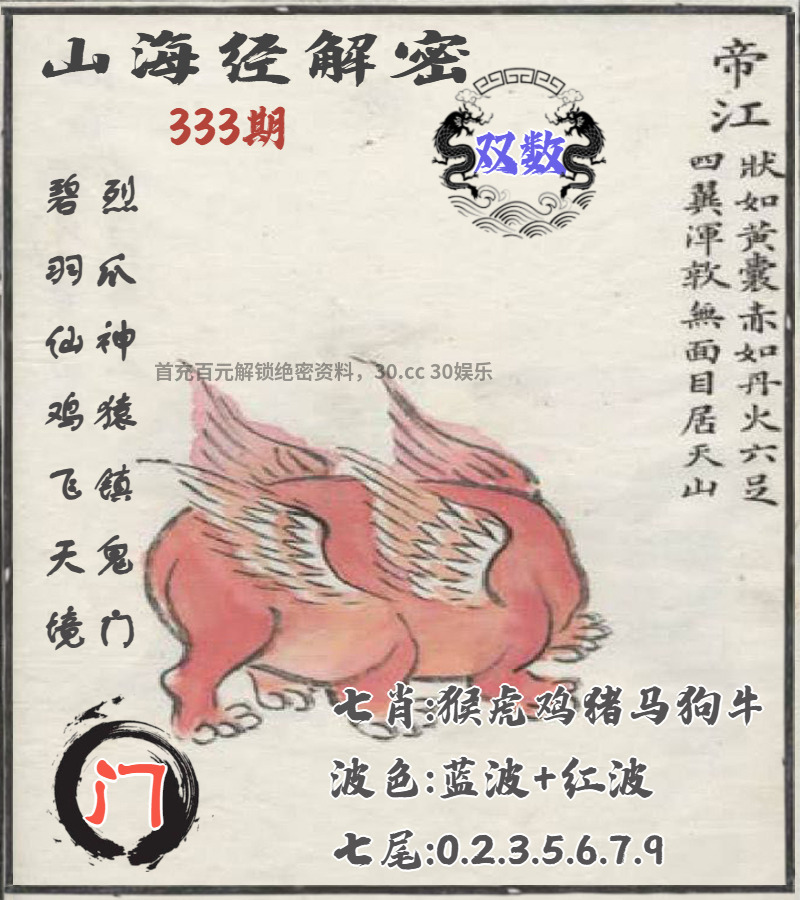 山海经解密
333期
双数
帝江
狀如黃囊赤如丹火六足
四翼渾敦無面目居天山
烈爪神猿镇鬼门
碧羽仙鸡飞天境
首充百元解锁绝密资料，30.cc 30娱乐
七肖:猴虎鸡猪马狗牛
门
波色:蓝波+红波
七尾:0.2.3.5.6.7.9